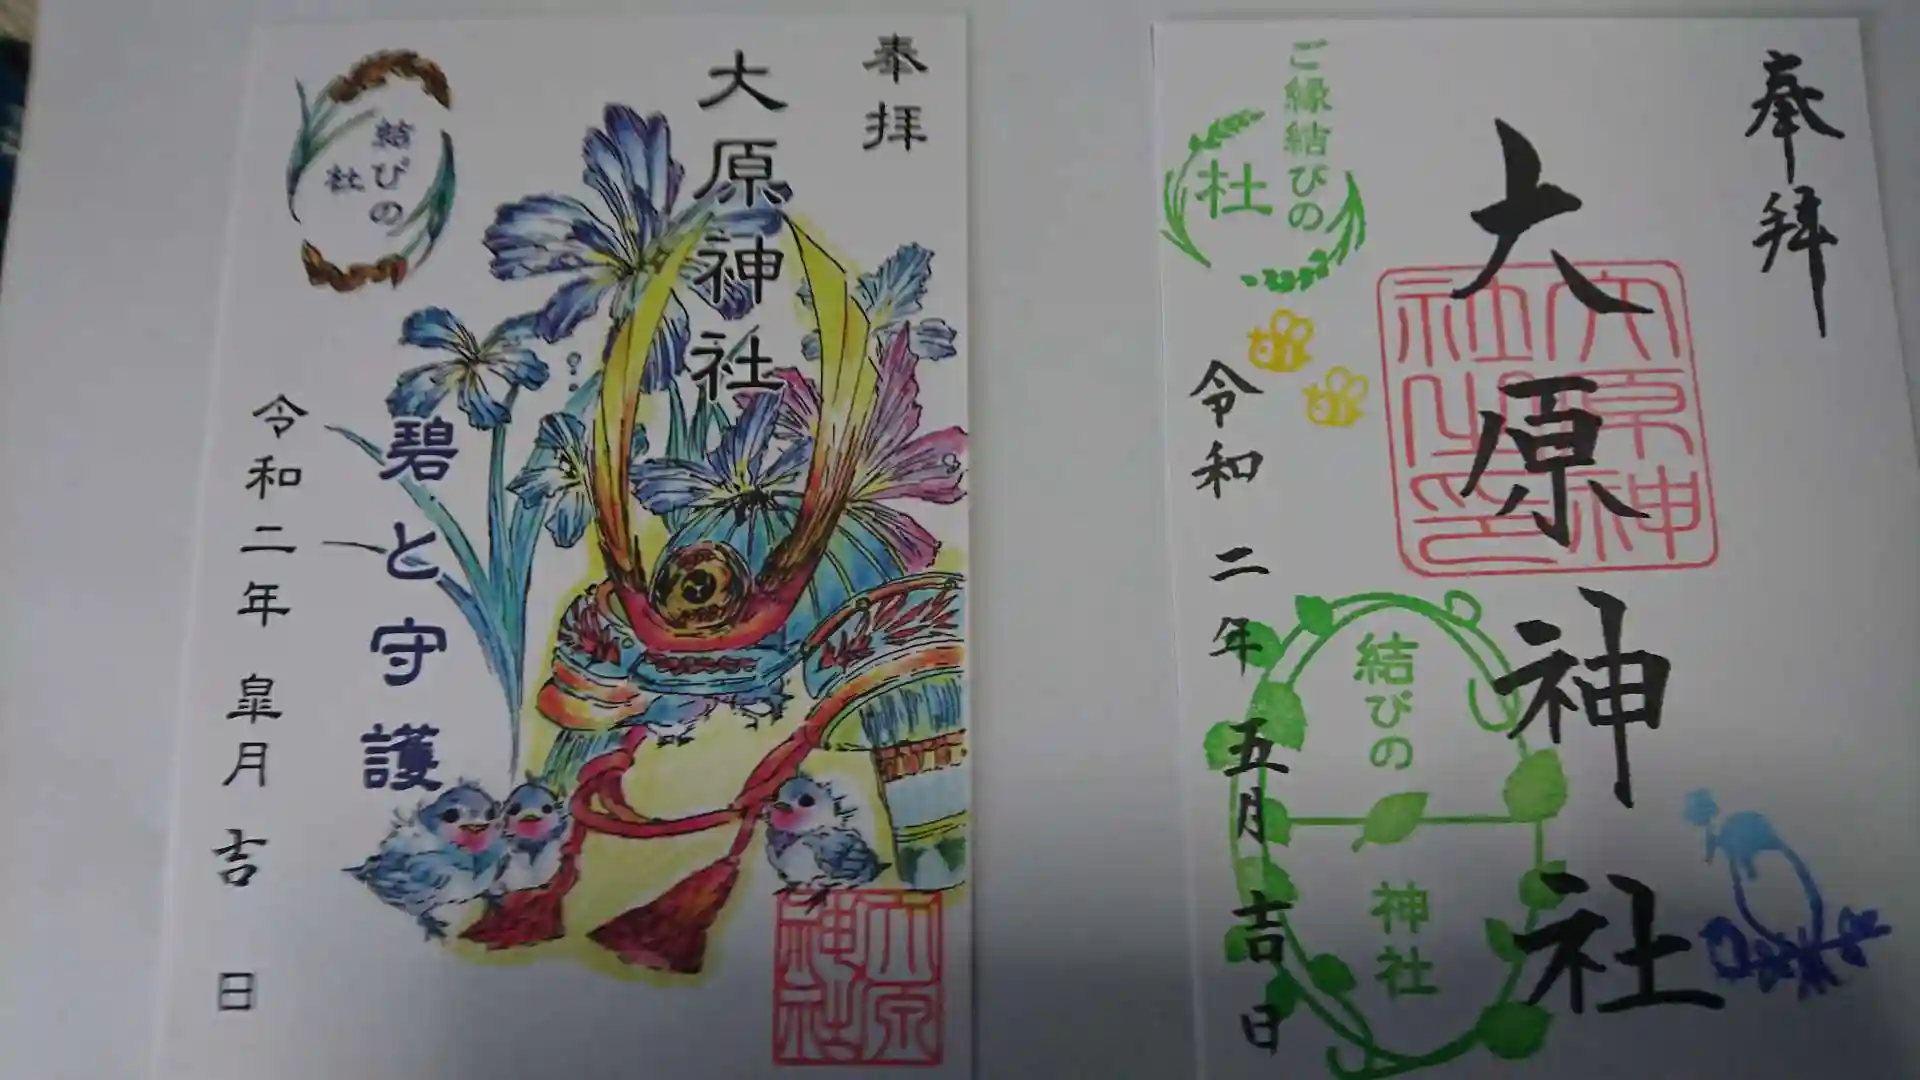 奉拝
大原神社
結びの
社
碧と守護
令和二年 皐月 吉日
大原
神社
奉拝
大原神社
大原神
社之印
ご縁結びの
杜
令和二年 五月 吉日
結びの
神社